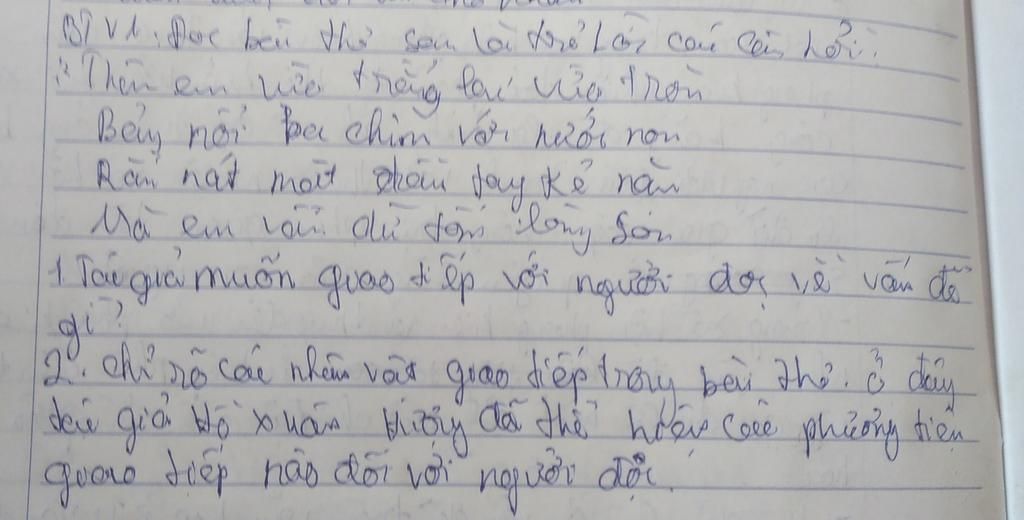 BT V1: Đọc bài thơ sau và trả lời câu câu hỏi:
"Thân em vừa trắng lại vừa tròn
Bảy nổi ba chìm với nước non
Rắn nát mặt dầu tay kẻ nặn
Mà em vẫn giữ tấm lòng son
1. Tác giả muốn giao tiếp với người đọc về vấn đề
gì?
2. Chỉ rõ các nhân vật giao tiếp trong bài thơ. Ở đây
tác giả Hồ Xuân Hương đã thể hiện các phương tiện
giao tiếp nào đối với người đọc.